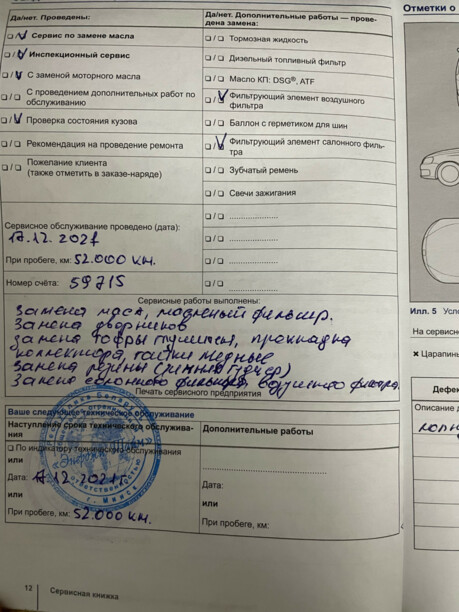 Да/нет. Проведены:
☐/☑ Сервис по замене масла
☐/☑ Инспекционный сервис
☐/☑ С заменой моторного масла
☐/☐ С проведением дополнительных работ по обслуживанию
☐/☑ Проверка состояния кузова
☐/☐ Рекомендация на проведение ремонта
☐/☐ Пожелание клиента
(также отметить в заказе-наряде)
Сервисное обслуживание проведено (дата):
17.12.2021
При пробеге, км: 52.000 км.
Номер счёта: 59715
Да/нет. Дополнительные работы — проведена замена:
☐/☐ Тормозная жидкость
☐/☐ Дизельный топливный фильтр
☐/☐ Масло КП: DSG®, ATF
☐/☑ Фильтрующий элемент воздушного фильтра
☐/☐ Баллон с герметиком для шин
☐/☑ Фильтрующий элемент салонного фильтра
☐/☐ Зубчатый ремень
☐/☐ Свечи зажигания
☐/☐ ....................
☐/☐ ....................
☐/☐ ....................
☐/☐ ....................
Сервисные работы выполнены:
Замена масла, масляный фильтр.
Замена дворников
замена гофры глушителя, прокладка
коллектора, гайки медные
Замена резины (зимний)
Замена салонного фильтра, воздушного фильтра.
Печать сервисного предприятия
Ваше следующее техническое обслуживание
Наступление срока технического обслуживания
☐ По индикатору технического обслуживания
или
Дата: 17.12.2021г.
или
При пробеге, км: 52.000 км.
Дополнительные работы
Дата:
или
При пробеге, км:
г. Минск
12 Сервисная книжка
Отметки о
Илл. 5
На сервисн
✖ Царапины
Дефек
Описание д